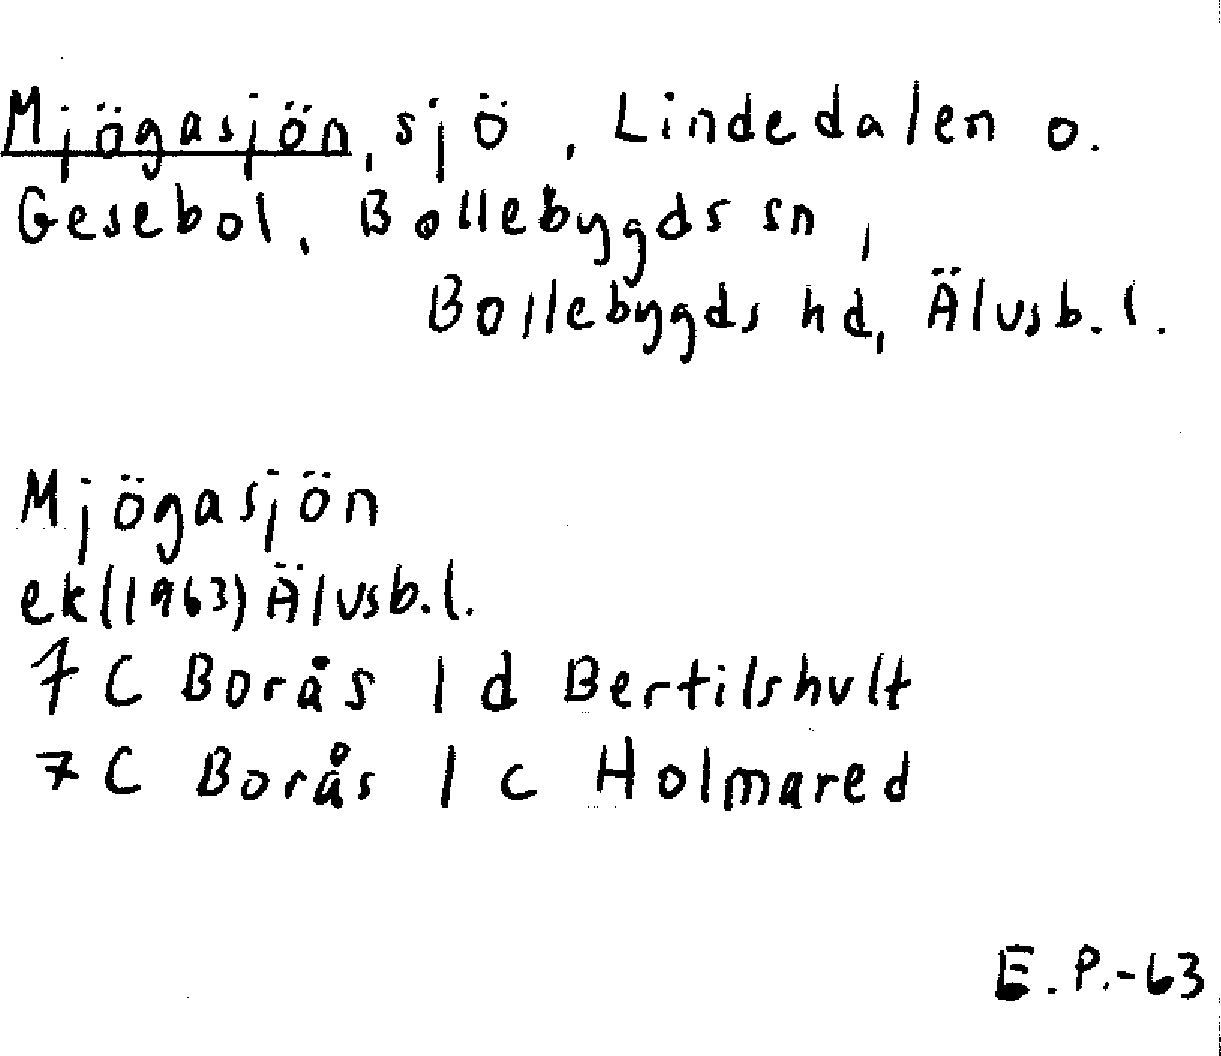 Mjögasjön, sjö, Lindedalen o.
Gesebol, Bollebygds sn,
Bollebygds hd, Älvsb. l.
Mjögasjön
ek (1963) Älvsb. l.
7 C Borås 1 d Bertilshult
7 C Borås 1 c Holmared
E. P. -63